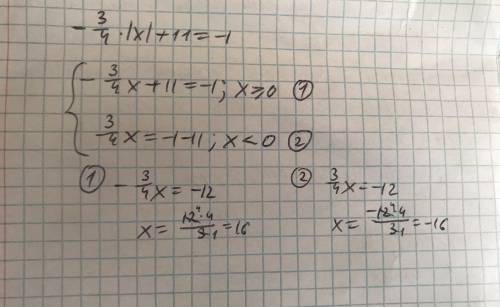 - 3/4 · |x| + 11 = -1
{ - 3/4 x + 11 = -1; x ≥ 0 ①
- 3/4 x = -1 - 11; x < 0 ②
① - 3/4 x = -12
x = 12⁴ · 4 / 3 1 = 16
② 3/4 x = -12
x = -12⁴ · 4 / 3 1 = -16